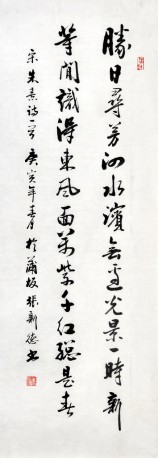 勝日尋芳泗水濱無邊光景一時新
等閒識得東風面萬紫千紅總是春
宋朱熹詩一首庚寅年春月於蕭坂張新德書